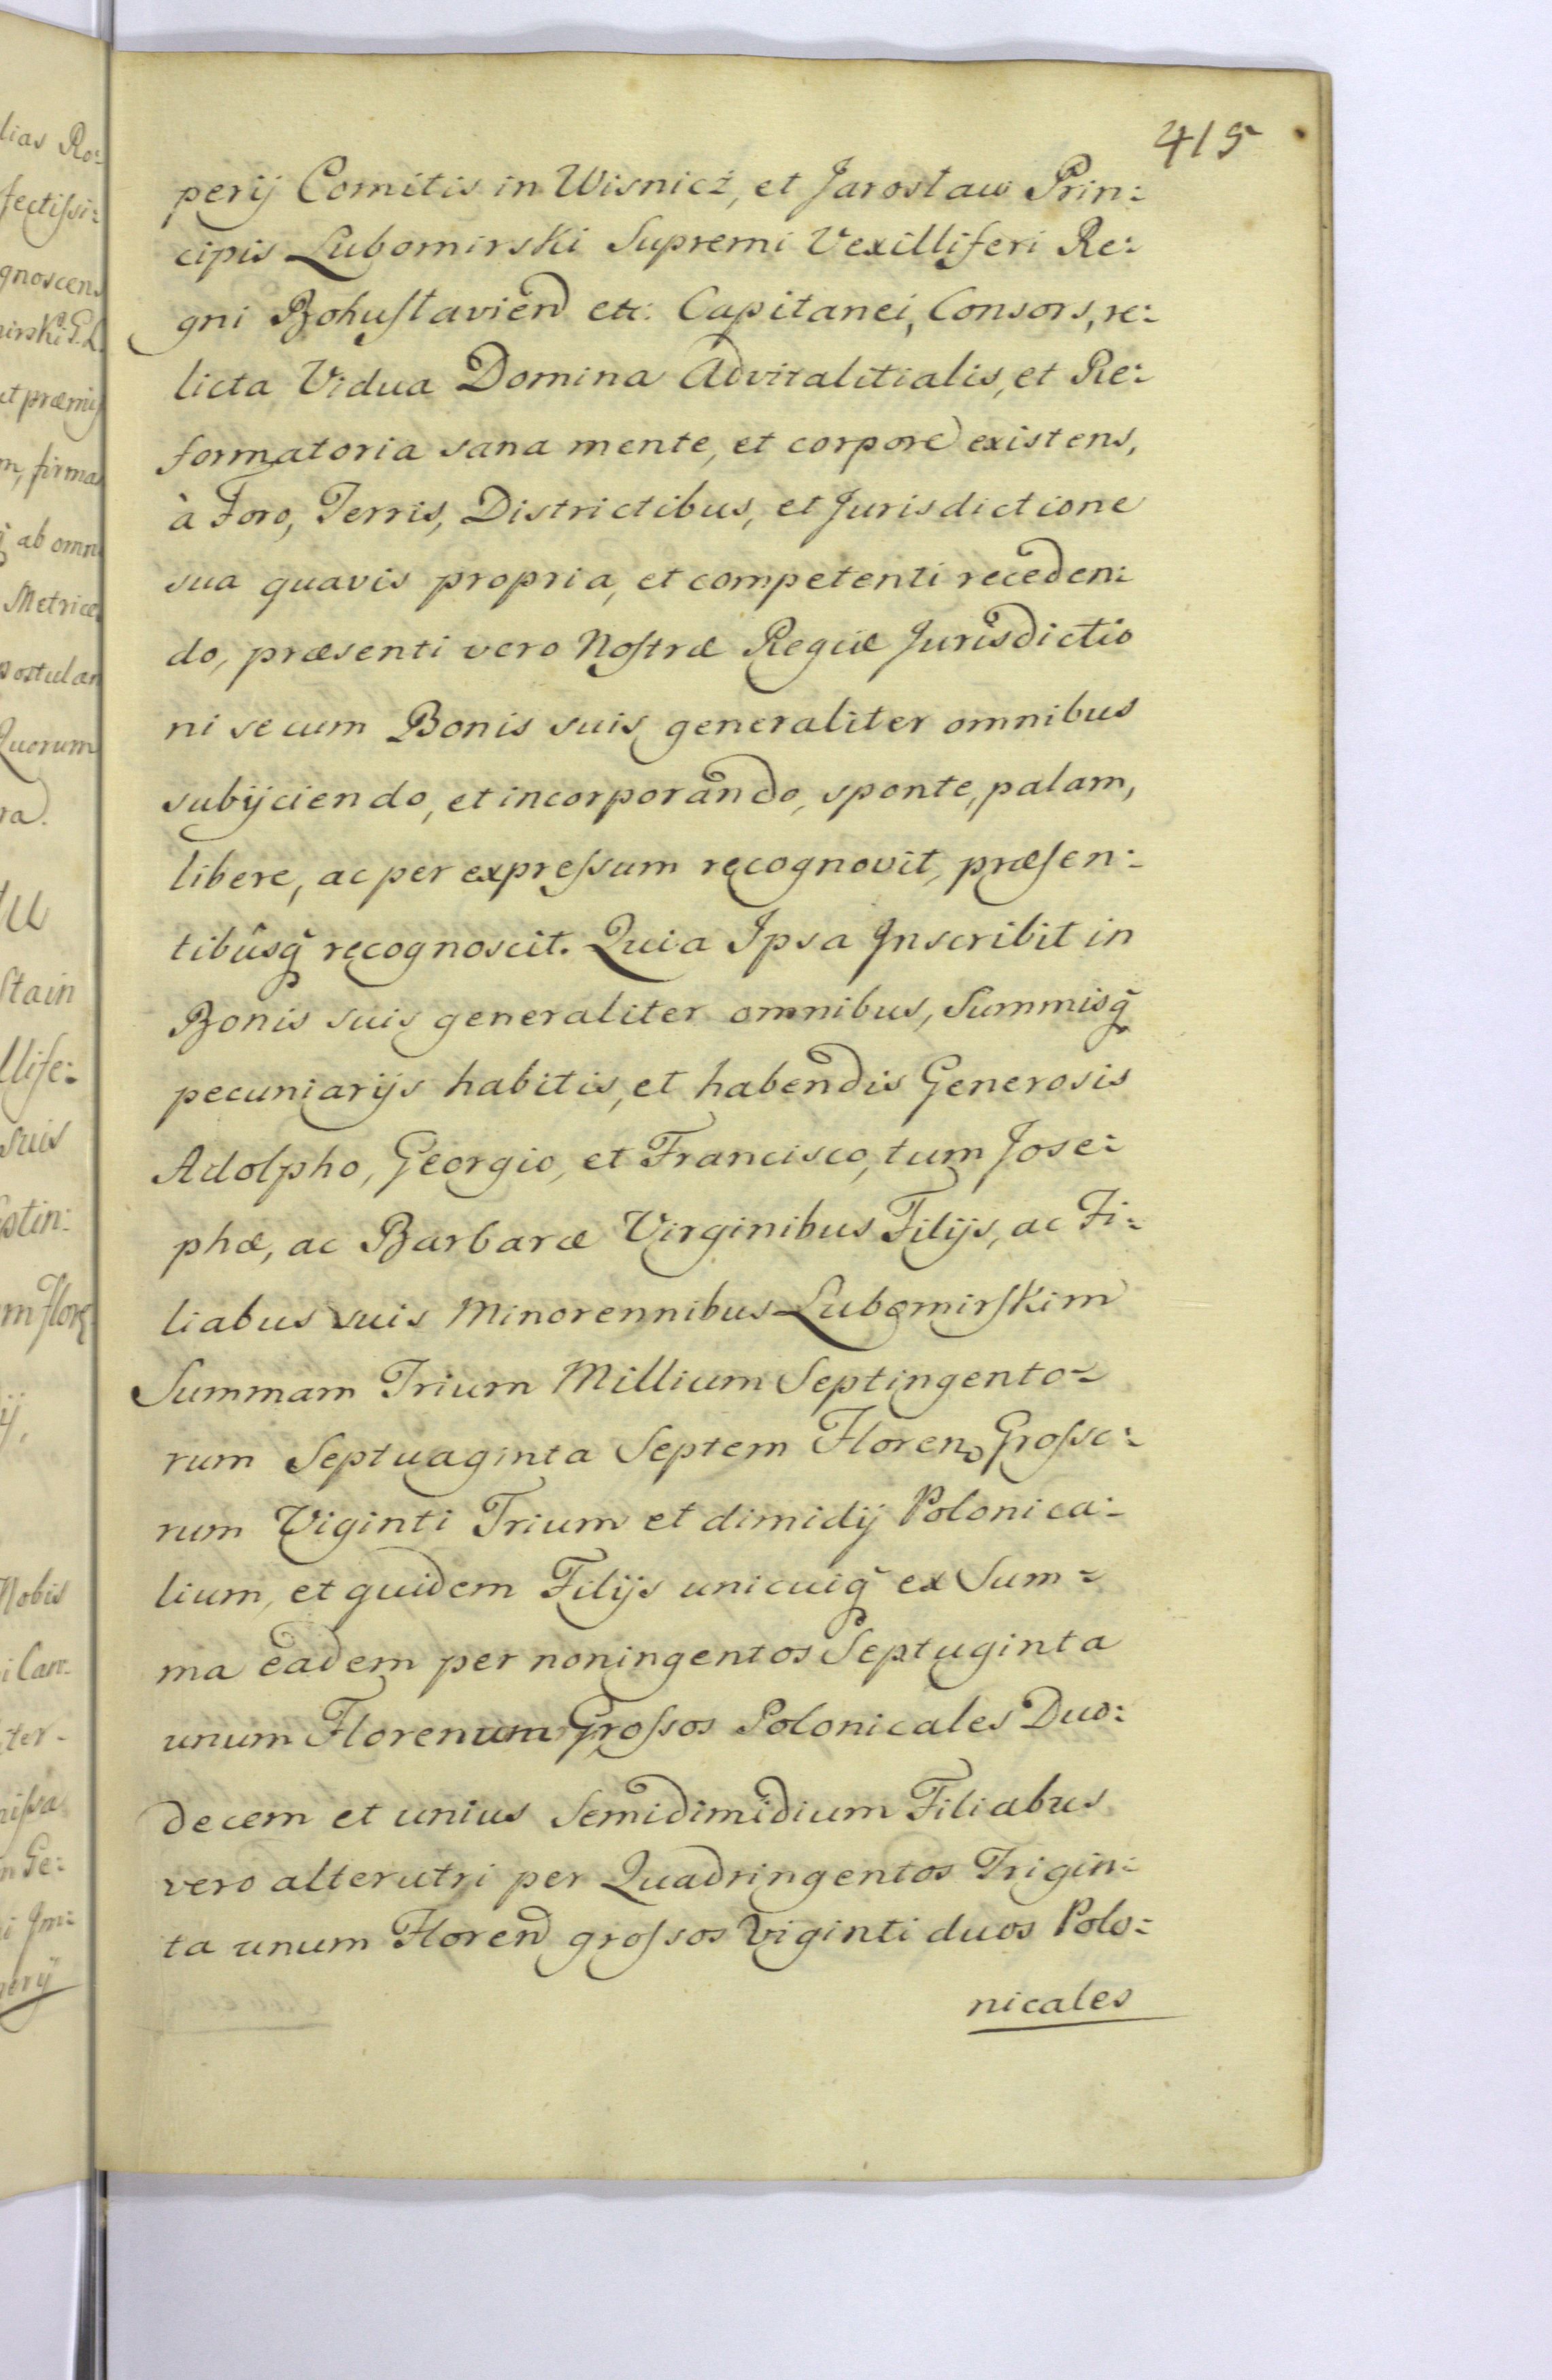 415
perij Comitis in Wisnicz, et Jarosław Prin:
cipis Lubomirski Supremi Vexilliferi Re:
gni Bohuslavien etc: Capitanei, Consors, re:
licta Vidua Domina Advitalitialis, et Re:
formatoria sana mente, et corpore existens,
à Foro, Terris, Districtibus, et Jurisdictione
sua quavis propria, et competenti receden:
do, præsenti vero Nostræ Regiæ Jurisdictio
ni se cum Bonis suis generaliter omnibus
subijciendo, et incorporando, sponte, palam,
libere, ac per expressum recognovit, præsen:
tibûsq̃ recognoscit. Quia Ipsa Inscribit in
Bonis suis generaliter omnibus, Summisq̃
pecuniarijs habitis, et habendis Generosis
Adolpho, Georgio, et Francisco, tum Jose:
phæ, ac Barbaræ Virginibus Filijs, ac Fi:
liabus suis Minorennibus Lubomirskim
Summam Trium Millium Septingento=
rum Septuaginta Septem Floren, Grosso:
rum Viginti Trium et dimidij Polonica:
lium, et quidem Filijs unicuiq̃ ex Sum=
ma eadem per noningentos Septuginta
unum Florenum Grossos Polonicales Duo:
decem et unius Semidimidium Filiabus
vero alterutri per Quadringentos Trigin:
ta unum Floren grossos Viginti duos Polo:
nicales
lias Ro:
fectissi:
gnoscens
et præmis
m, firma
ab omni
Metricæ
postulan
Quorum
ra.
tu
Stain
llife:
suis
stin:
m Flore
ij,
Nobis
i Can:
ter-
missa
n Ge:
i Im:
perij